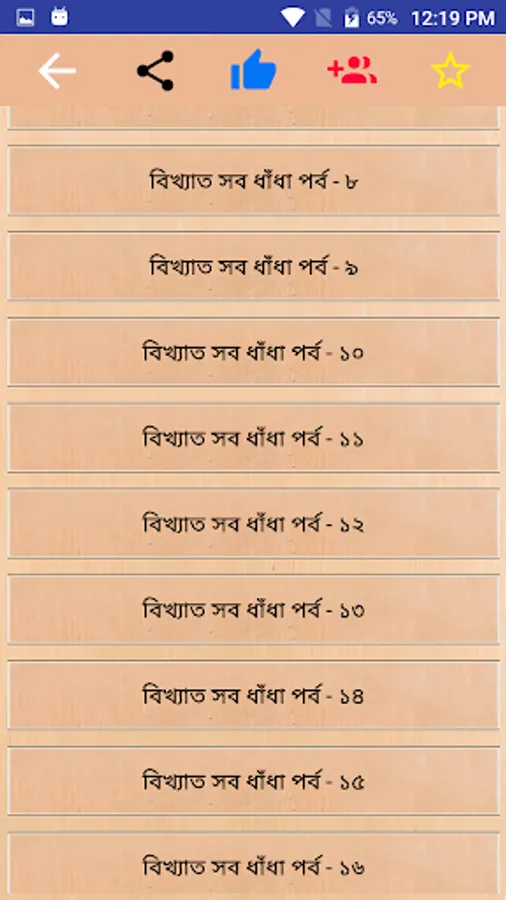 65% 12:19 PM
বিখ্যাত সব ধাঁধা পর্ব - ৮
বিখ্যাত সব ধাঁধা পর্ব - ৯
বিখ্যাত সব ধাঁধা পর্ব - ১০
বিখ্যাত সব ধাঁধা পর্ব - ১১
বিখ্যাত সব ধাঁধা পর্ব - ১২
বিখ্যাত সব ধাঁধা পর্ব - ১৩
বিখ্যাত সব ধাঁধা পর্ব - ১৪
বিখ্যাত সব ধাঁধা পর্ব - ১৫
বিখ্যাত সব ধাঁধা পর্ব - ১৬